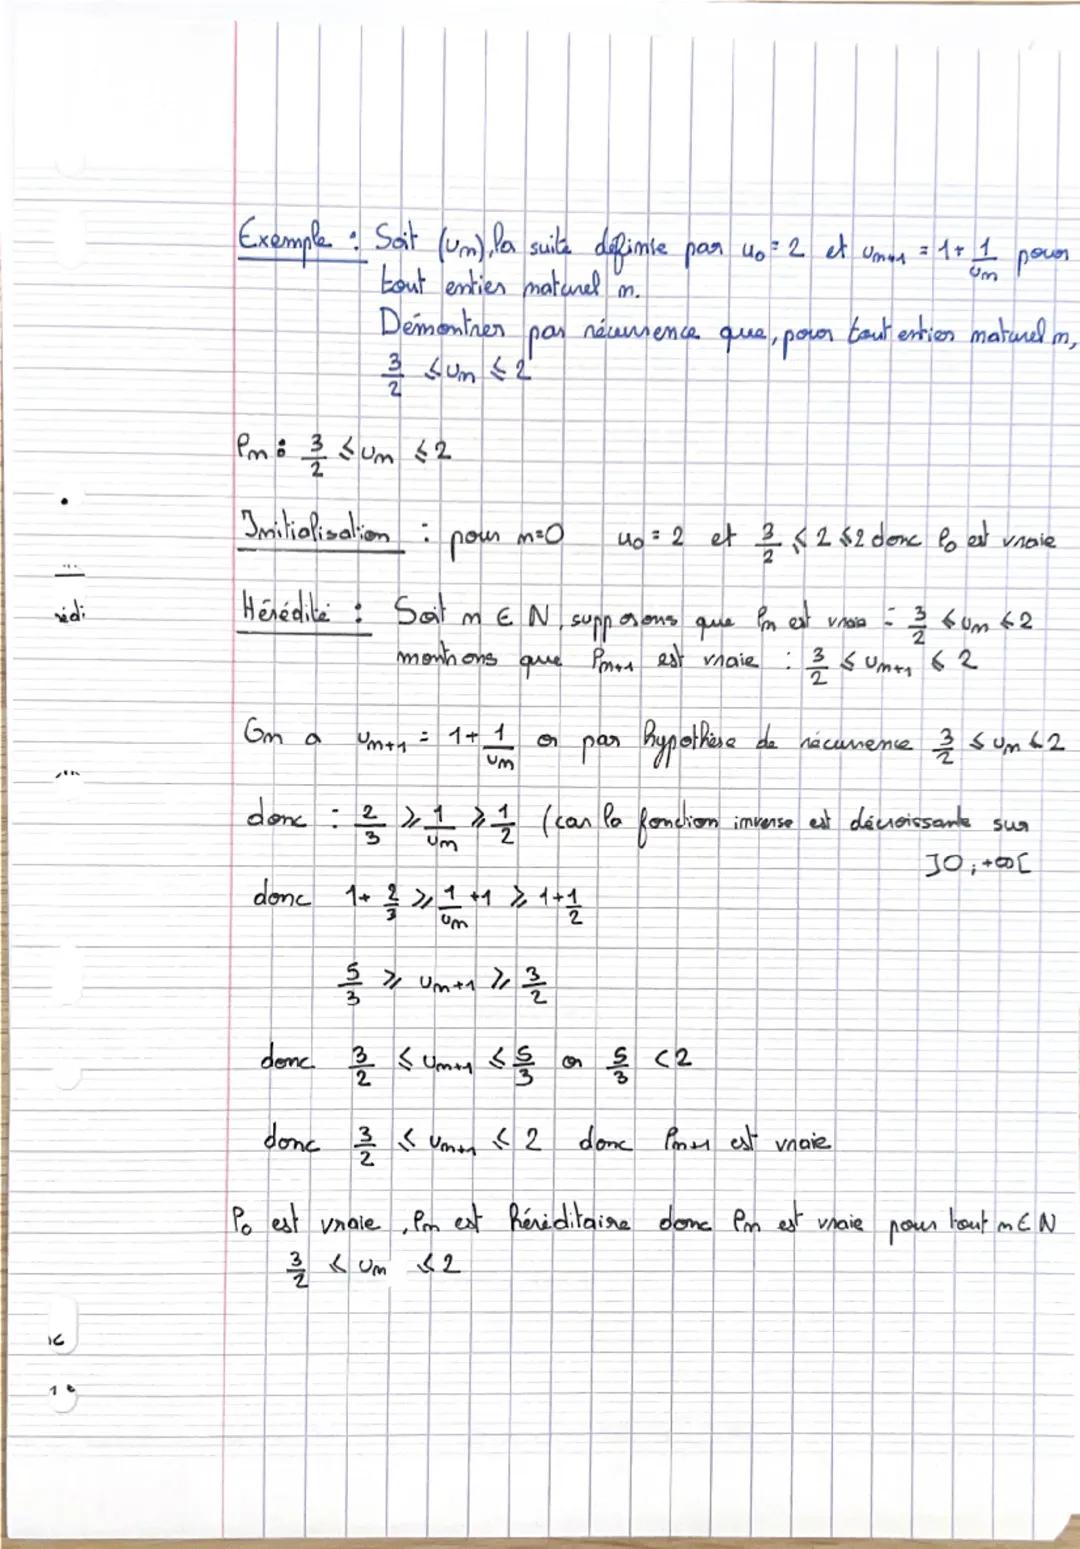 Exemple : Soit (un), la suite définie par u0 = 2 et un+1 = 1 + 1/un pour
tout entier naturel n.
Démontrer par récurrence que, pour tout entier naturel n,
3/2 ≤ un ≤ 2
Pn : 3/2 ≤ un ≤ 2
Initialisation : pour n=0 u0 = 2 et 3/2 ≤ 2 ≤ 2 donc P0 est vraie
Hérédité : Soit n ∈ N, supposons que Pn est vraie : 3/2 ≤ un ≤ 2
montrons que Pn+1 est vraie : 3/2 ≤ un+1 ≤ 2
On a un+1 = 1 + 1/un or par hypothèse de récurrence 3/2 ≤ un ≤ 2
donc : 2/3 ≥ 1/un ≥ 1/2 (car la fonction inverse est décroissante sur
]0 ; +∞[
donc 1 + 2/3 ≥ 1/un + 1 ≥ 1 + 1/2
5/3 ≥ un+1 ≥ 3/2
donc 3/2 ≤ un+1 ≤ 5/3 or 5/3 < 2
donc 3/2 ≤ un+1 ≤ 2 donc Pn+1 est vraie
P0 est vraie, Pn est héréditaire donc Pn est vraie pour tout n ∈ N
3/2 ≤ un ≤ 2
rédi